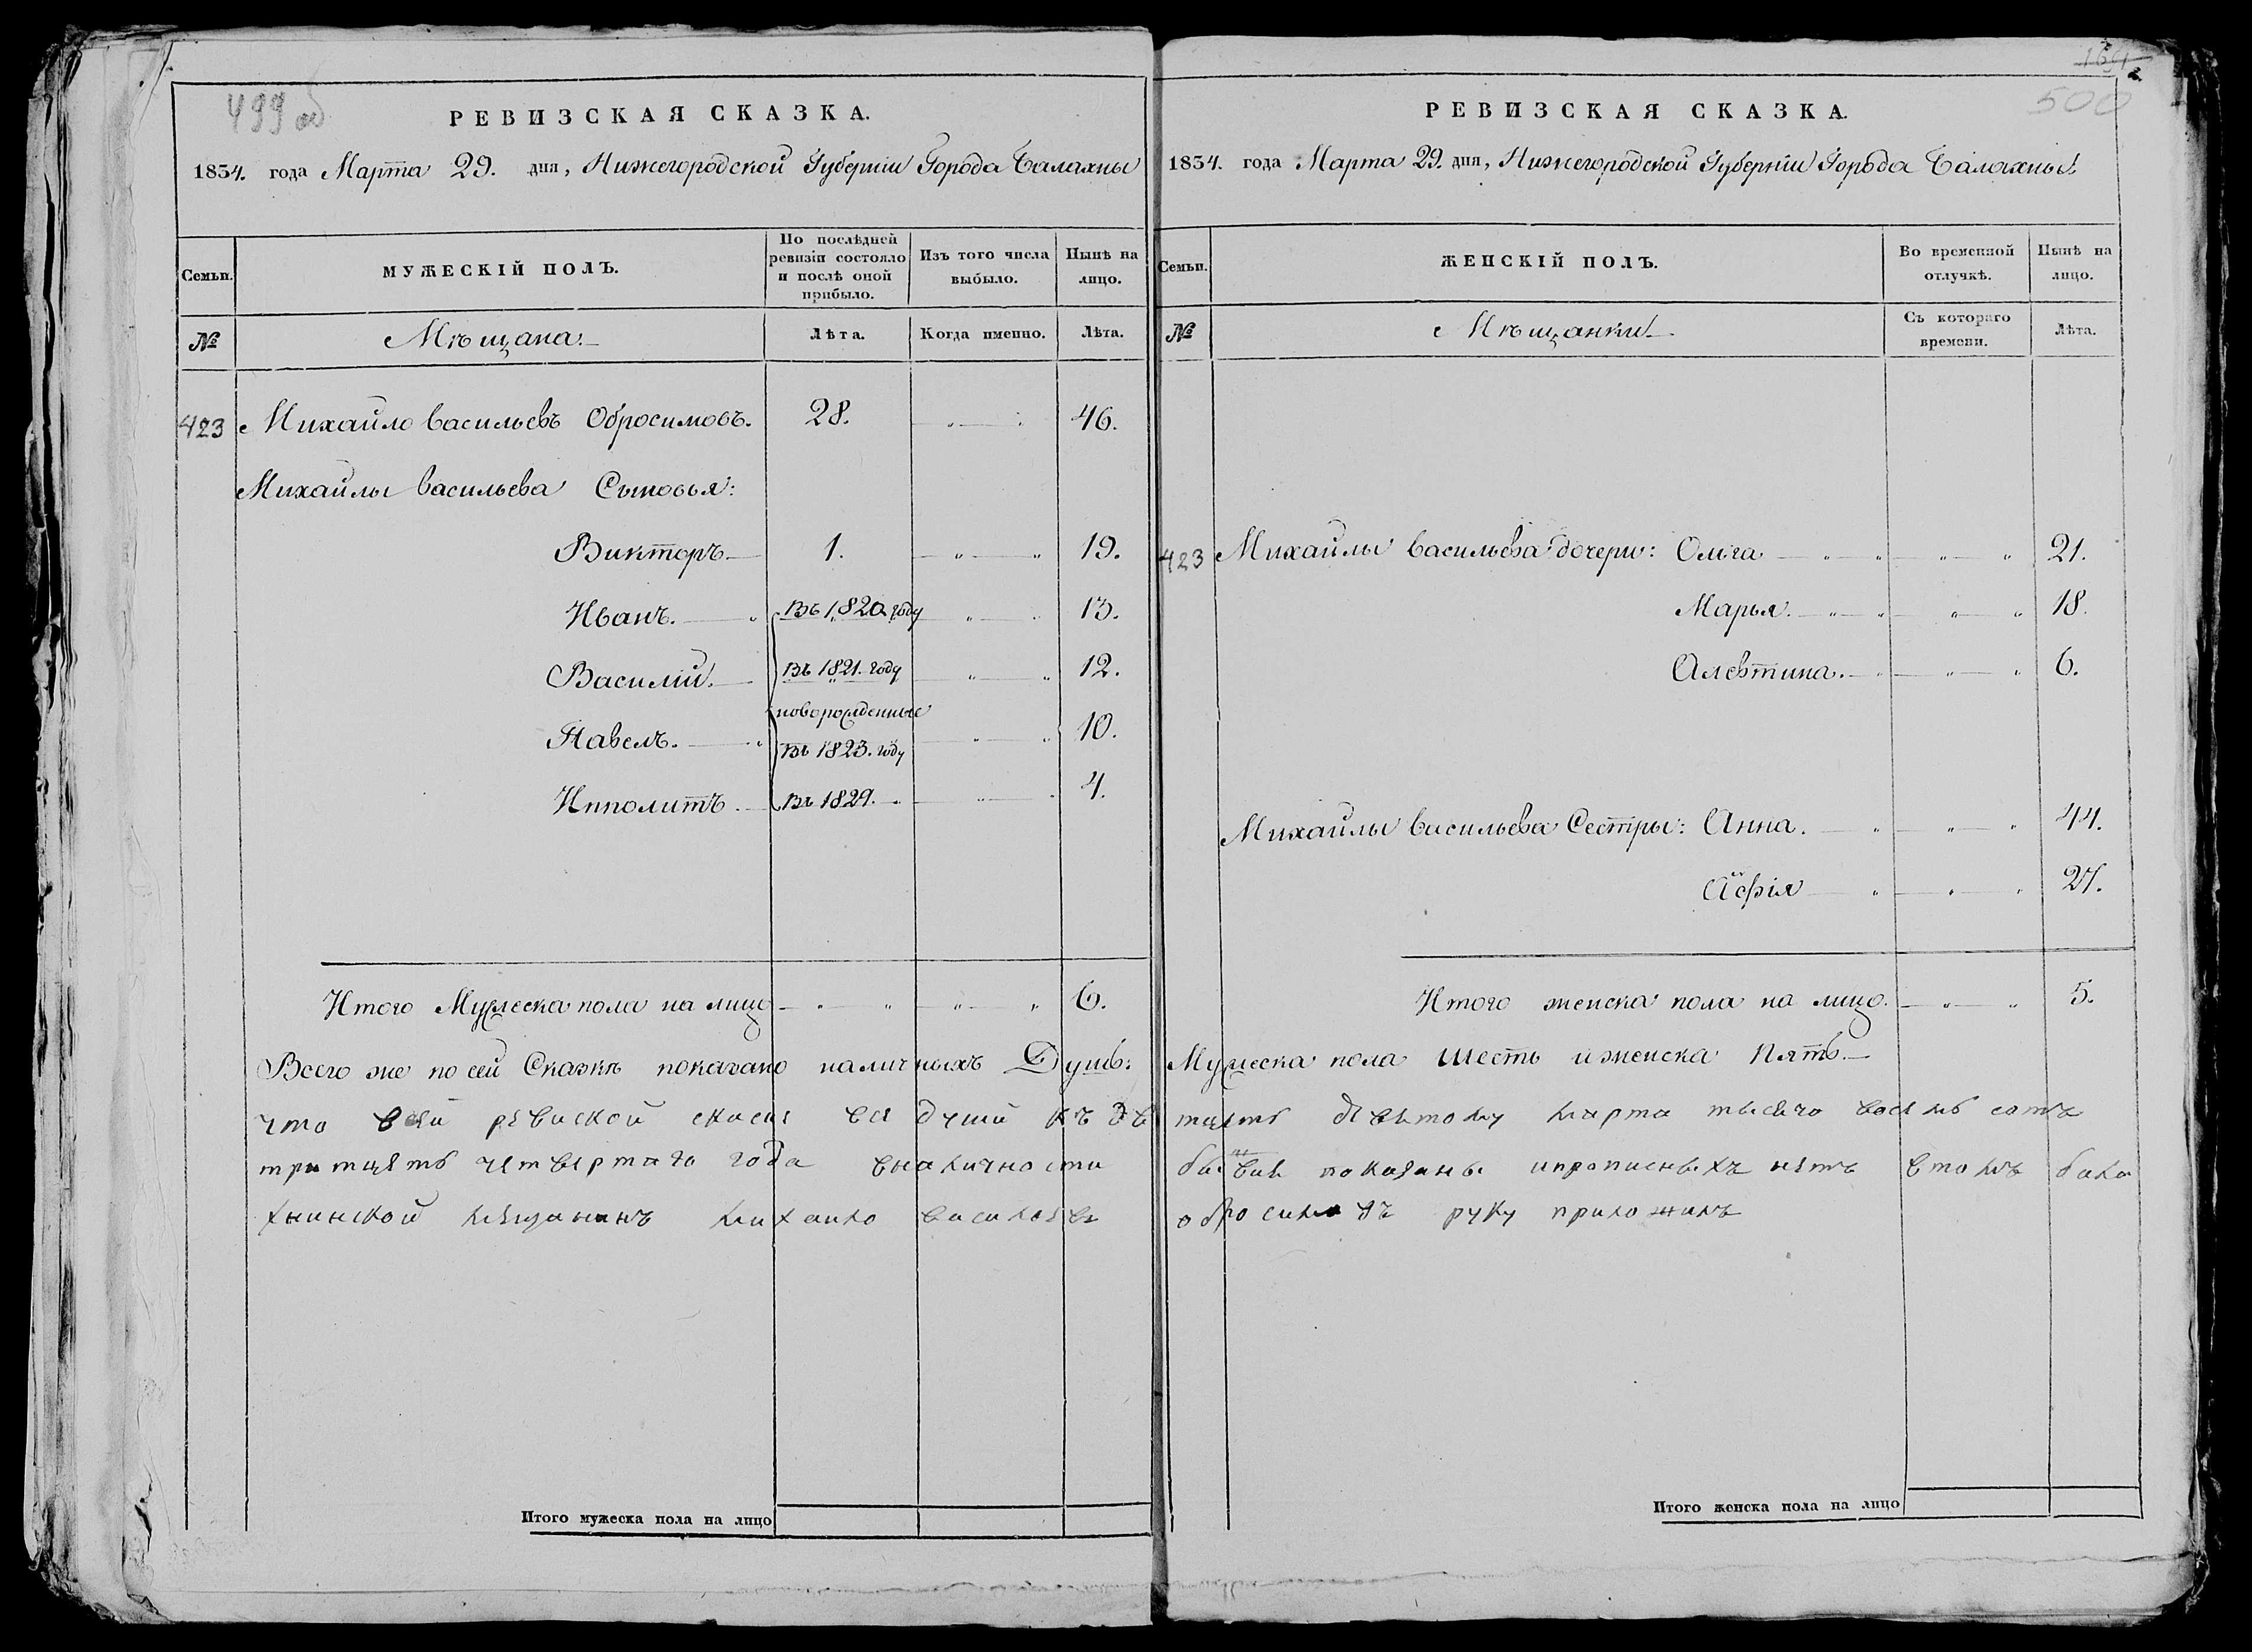 499 об
РЕВИЗСКАЯ СКАЗКА.
1834. года Марта 29. дня, Нижегородской Губерніи Города Балахны
Семьи.
МУЖЕСКІЙ ПОЛЪ.
По послѣдней ревизіи состояло и послѣ оной прибыло.
Изъ того числа выбыло.
Нынѣ на лицо.
№
Мѣщана.
Лѣта.
Когда именно.
Лѣта.
423 Михайло Васильевъ Обросимовъ. 28. 46.
Михайлы Васильева Сыновья:
Викторъ 1. 19.
Иванъ. Въ 1820 году 13.
Василій. Въ 1821. году 12.
новорожденные
Павелъ. Въ 1823. году 10.
Ипполитъ. Въ 1829. 4.
Итого Мужеска пола на лицо 6.
Всего же по сей Сказкѣ показано наличныхъ Душъ:
что всей ревиской скаске все душы къ два
тритцеть четвертаго года вналичности
хнинской мещанинъ михаило василеевъ
Итого мужеска пола на лицо
164
500
РЕВИЗСКАЯ СКАЗКА.
1834. года Марта 29. дня, Нижегородской Губерніи Города Балахны
Семьи.
ЖЕНСКІЙ ПОЛЪ.
Во временной отлучкѣ.
Нынѣ на лицо.
№
Мѣщанки
Съ котораго времени.
Лѣта.
423 Михайлы Васильева дочери: Ольга 21.
Марья. 18.
Алевтина. 6.
Михайлы Васильева Сестры: Анна. 44.
27.
Итого женска пола на лицо. 5.
Мужеска пола шесть и женска пять.
тцеть девятому марта тысечо восемь сотъ
показаны ипрописныхъ нетъ втомъ бала
обросимовъ руку приложилъ
Итого женска пола на лицо